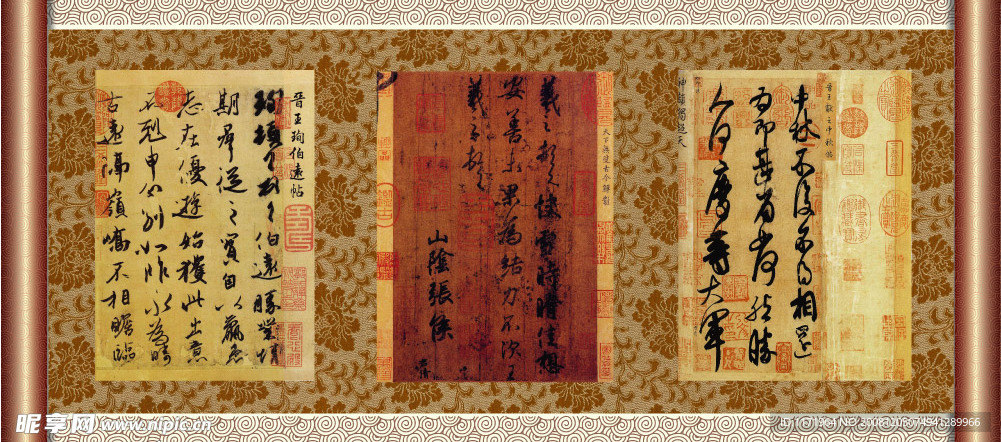 晉王珣伯遠帖
珣頓首頓首伯遠勝業情
期群從之寶自以羸患
志在優遊始獲此出意
不剋申分別如昨永為疇
古遠隔嶺嶠不相瞻臨
天下無雙古今鮮對
羲之頓首快雪時晴佳想
安善未果為結力不次王
羲之頓首
山陰張侯
晉王獻之中秋帖
中秋不復不得相還
為即甚省如何然勝
人何慶等大軍
神韻獨超天
昵享网 www.nipic.cn